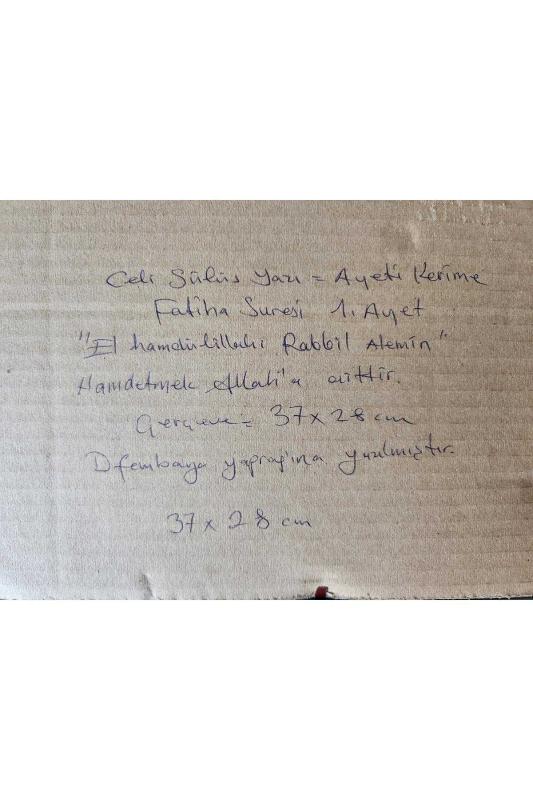 Celi Sülüs Yazı = Ayeti Kerime
Fatiha Suresi 1. Ayet
"El hamdülillahi Rabbil Alemin"
Hamdetmek Allah'a aittir.
Çerçeve = 37x28 cm
Difembahya yaprağına yazılmıştır.
37 x 28 cm